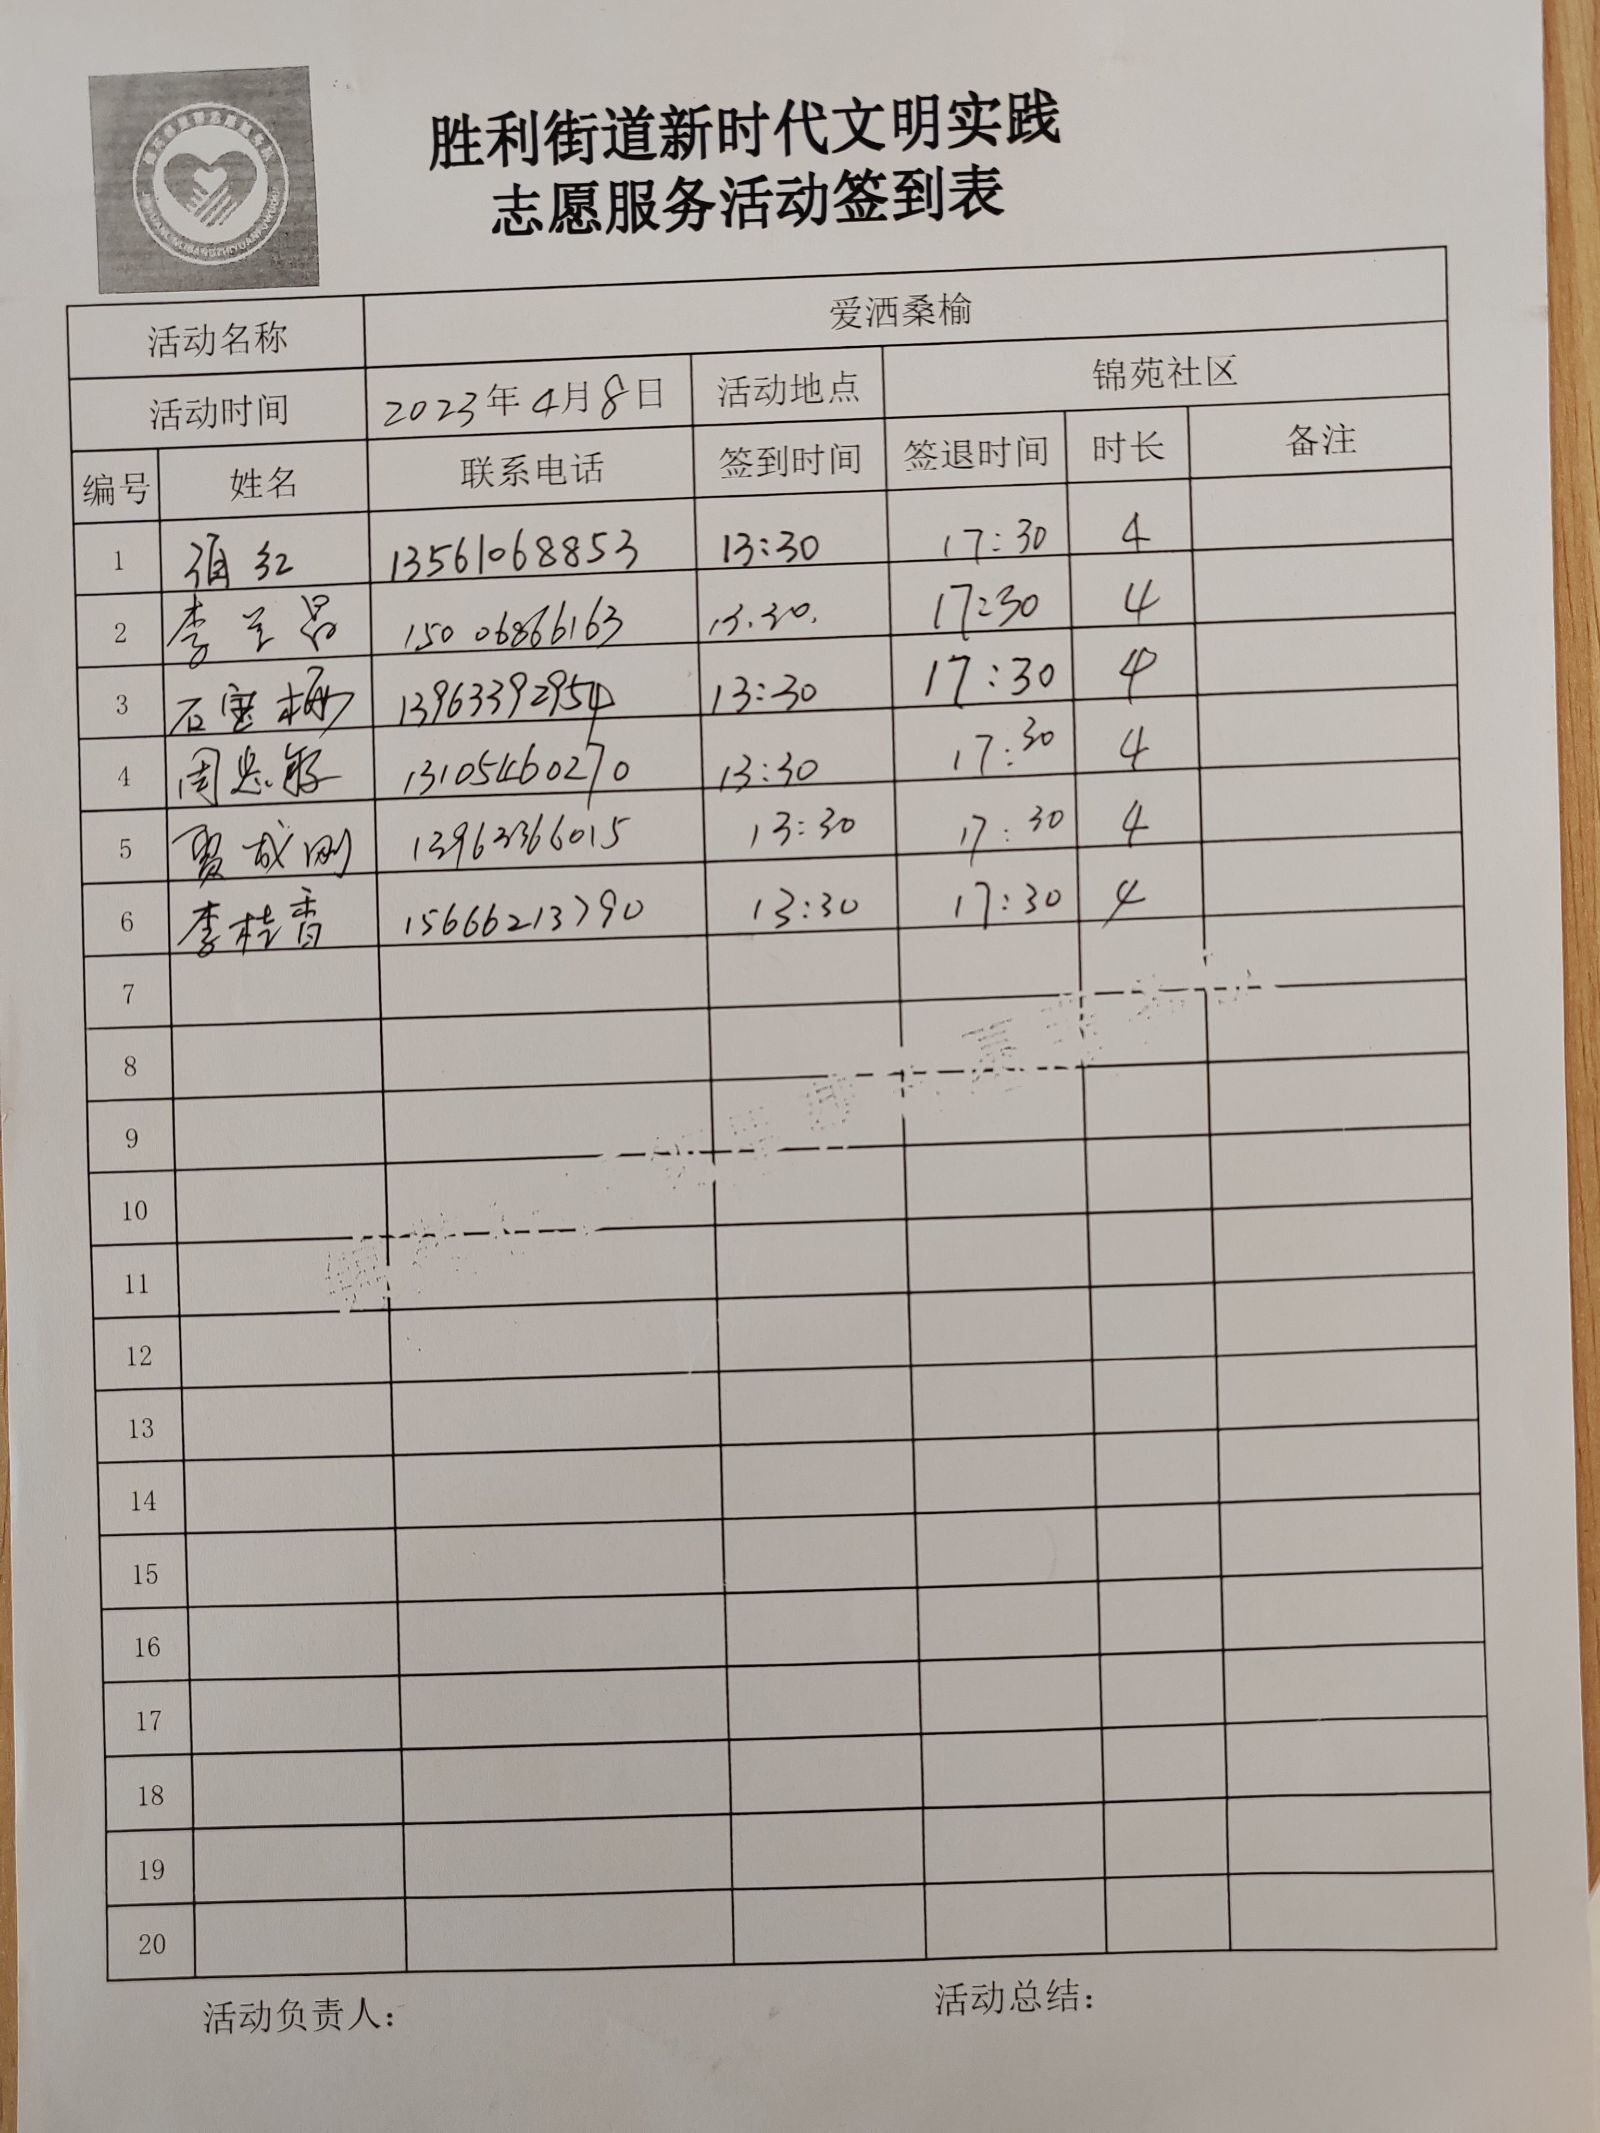 胜利街道新时代文明实践
志愿服务活动签到表
活动名称 爱洒桑榆
活动时间 2023年4月8日 活动地点 锦苑社区
编号 姓名 联系电话 签到时间 签退时间 时长 备注
1 红 13561068853 13:30 17:30 4
2 李兰昌 15006866163 13.30. 17:30 4
3 石宝梅 13963392954 13:30 17:30 4
4 周忠 13105460270 13:30 17:30 4
5 成刚 13963366015 13:30 17:30 4
6 李桂香 15666213790 13:30 17:30 4
7
8
9
10
11
12
13
14
15
16
17
18
19
20
活动负责人： 活动总结：